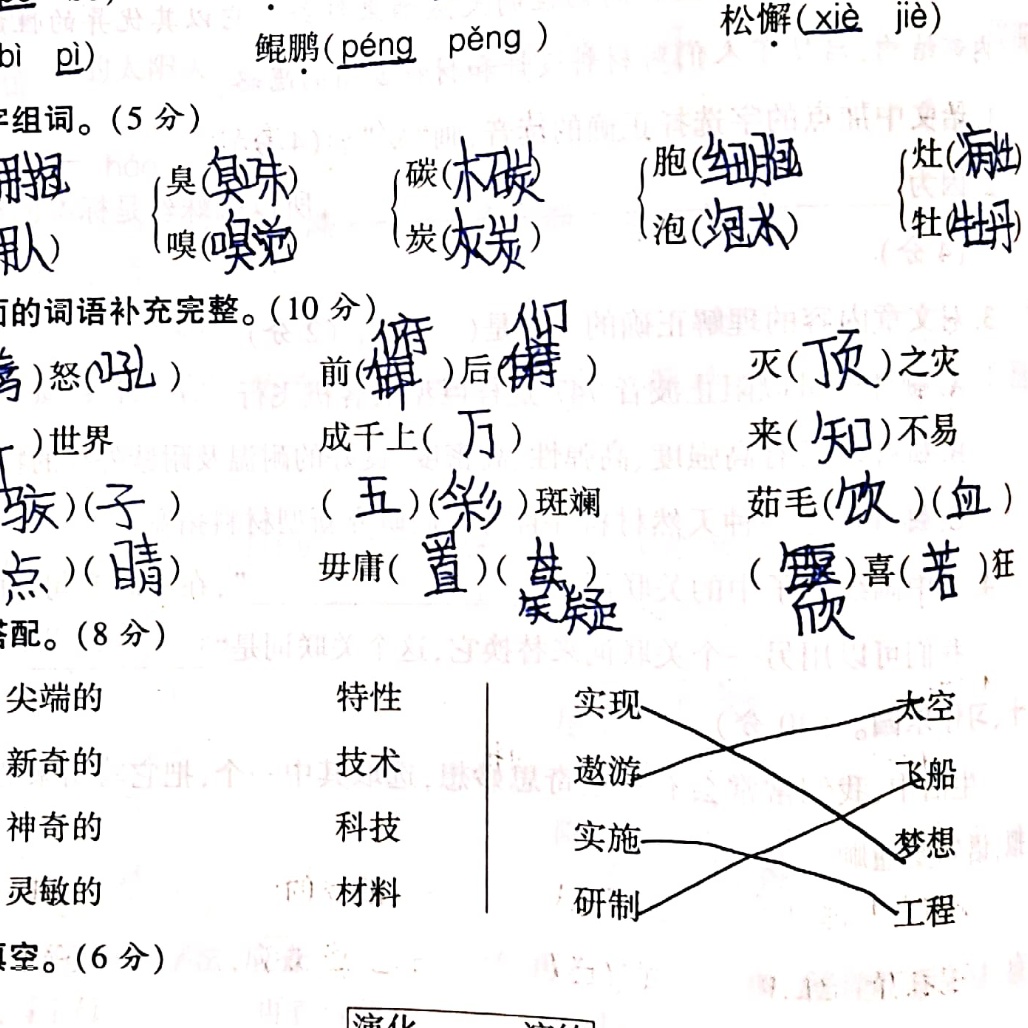 松懈(xiè jiè)
bì pì) 鲲鹏(péng pěng )
字组词。(5 分)
拥抱 臭(臭味) 碳(木碳) 胞(细胞) 灶(病灶)
佣人) 嗅(嗅觉) 炭(灰炭) 泡(泡水) 牡(牡丹)
面的词语补充完整。(10 分)
)怒(吼 ) 前(俯 )后(仰 ) 灭(顶)之灾
)世界 成千上( 万 ) 来( 知)不易
孩)(子 ) ( 五 )(彩 )斑斓 茹毛(饮 )(血 )
点 )( 睛) 毋庸( 置 )( 疑 ) ( 欣 )喜( 若 )狂
搭配。(8 分)
尖端的 特性 实现 太空
新奇的 技术 遨游 飞船
神奇的 科技 实施 梦想
灵敏的 材料 研制 工程
填空。(6 分)
演化